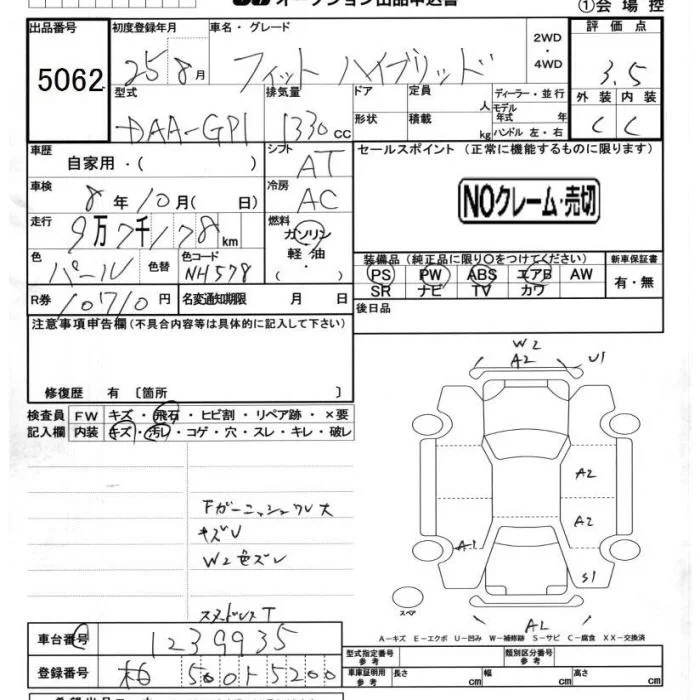 オークション出品申込書
①会場控
出品番号 初度登録年月 車名・グレード 2WD・4WD 評価点
5062 25 8月 フィット ハイブリッド 3.5
型式 排気量 ドア 定員 人 ディーラー・並行 外装 内装
DAA-GP1 1330cc 形状 積載 kg モデル年式 年 ハンドル 左・右 C C
車歴 シフト セールスポイント (正常に機能するものに限ります)
自家用・( ) AT
車検 冷房
8年10月( 日) AC NOクレーム・売切
走行 燃料
9万7千178km ガソリン
色 色替 色コード 軽油 装備品 (純正品に限り○をつけてください) 新車保証書
パール NH578 ・( ) PS PW ABS エアB AW 有・無
SR ナビ TV カワ
R券 10710円 名変通知期限 月 日 後日品
注意事項申告欄(不具合内容等は具体的に記入して下さい)
修復歴 有 〔箇所 〕
検査員 FW キズ・飛石・ヒビ割・リペア跡・×要
記入欄 内装 キズ・汚レ・コゲ・穴・スレ・キレ・破レ
W2
A2 U1
A2
A2
A1
S1
Fガーニッシュワレ大
キズU
W2色ズレ
スタッドレスT
スペア
A2
A-キズ E-エクボ U-凹み W-補修跡 S-サビ C-腐食 XX-交換済
車台番号 1239935
型式指定番号 参考 類別区分番号 参考
登録番号 柏 500 15200
車庫証明用 参考 長さ cm 幅 cm 高さ cm